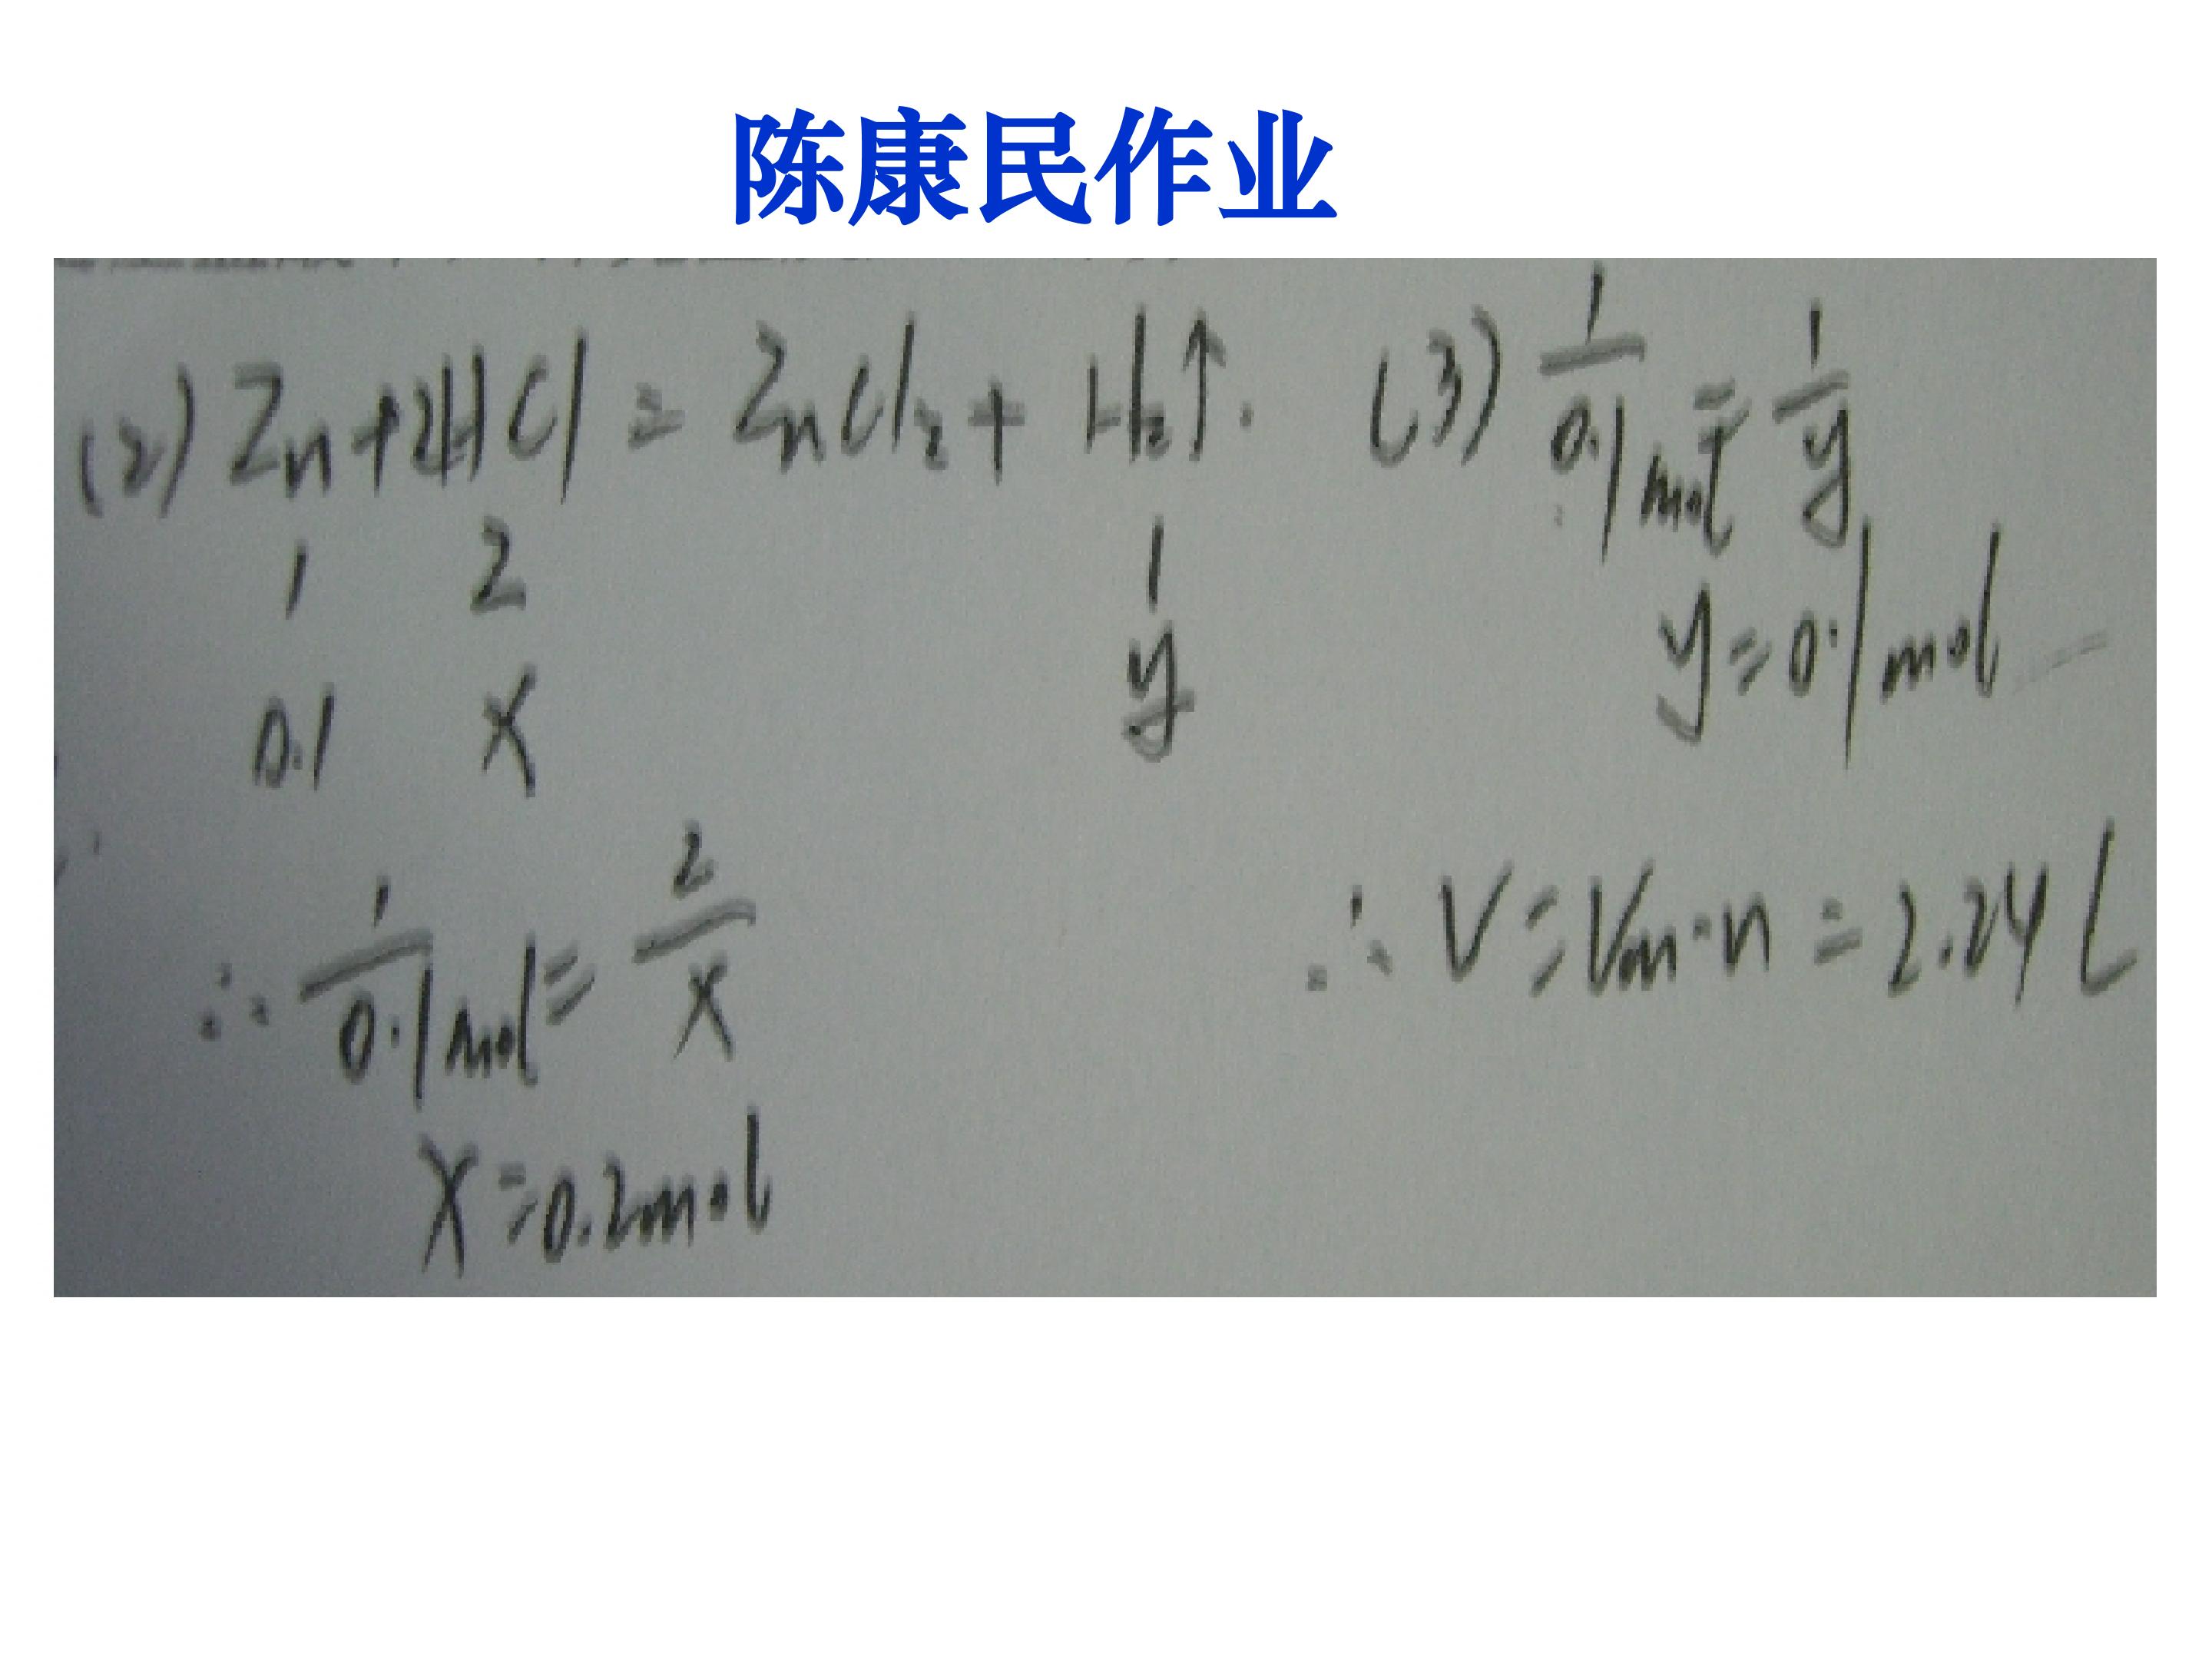 陈康民作业
(2) Zn + 2HCl = ZnCl₂ + H₂↑.
1 2 1
0.1 x y
∴ 1/0.1mol = 2/x
x = 0.2mol
(3) 1/0.1mol = 1/y
y = 0.1mol
∴ V = Vm·n = 2.24L